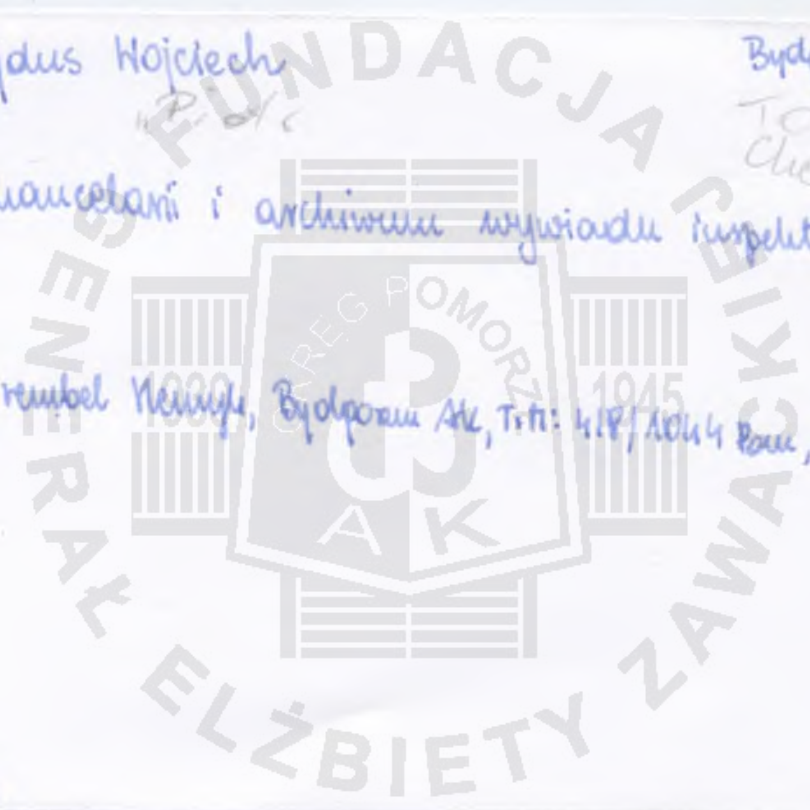 dus Wojciech
Byd
TO
Che
ancelarii i archiwum wywiadu inspekt
rembel Henryk, Bydgoszcz AK, T.M: 418/1044 Pom,
FUNDACJA
GENERAŁ ELŻBIETY ZAWACKIEJ
OKRĘG POMORZE
1939 1945
AK